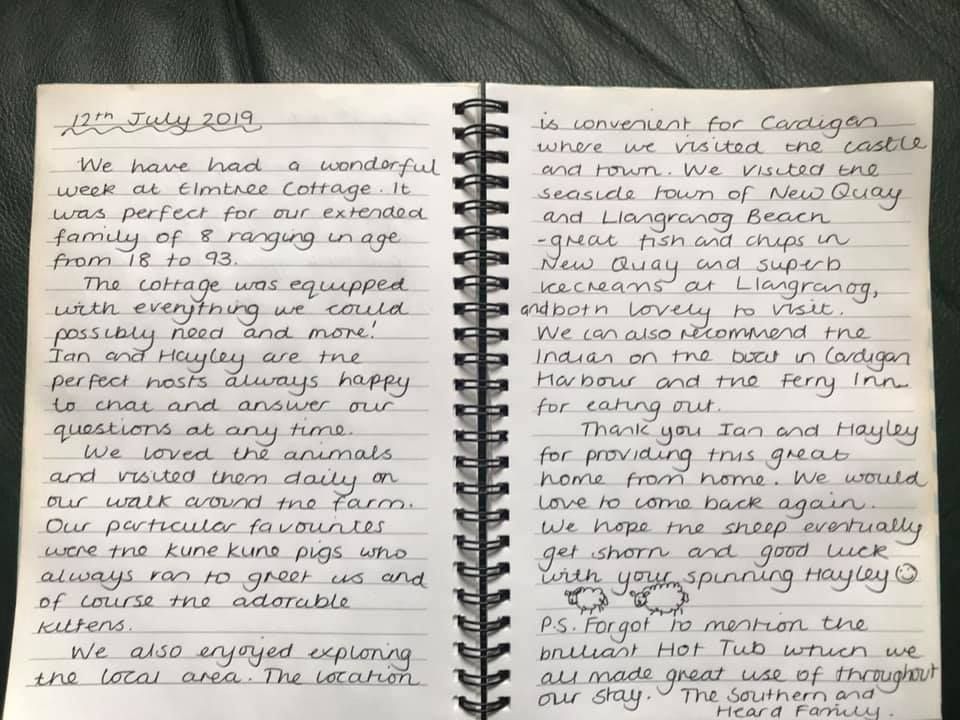 12th July 2019
We have had a wonderful
week at Elmtree Cottage. It
was perfect for our extended
family of 8 ranging in age
from 18 to 93.
The cottage was equipped
with everything we could
possibly need and more!
Ian and Hayley are the
perfect hosts always happy
to chat and answer our
questions at any time.
We loved the animals
and visited them daily on
our walk around the farm.
Our particular favourites
were the kune kune pigs who
always ran to greet us and
of course the adorable
kittens.
We also enjoyed exploring
the local area. The location
is convenient for Cardigan
where we visited the castle
and town. We visited the
seaside town of New Quay
and Llangranog Beach
- great fish and chips in
New Quay and superb
icecreams at Llangranog,
and both lovely to visit.
We can also recommend the
Indian on the boat in Cardigan
Harbour and the Ferry Inn
for eating out.
Thank you Ian and Hayley
for providing this great
home from home. We would
love to come back again.
We hope the sheep eventually
get shorn and good luck
with your spinning Hayley ☺
P.S. Forgot to mention the
brilliant Hot Tub which we
all made great use of throughout
our stay. The Southern and
Heard Family.